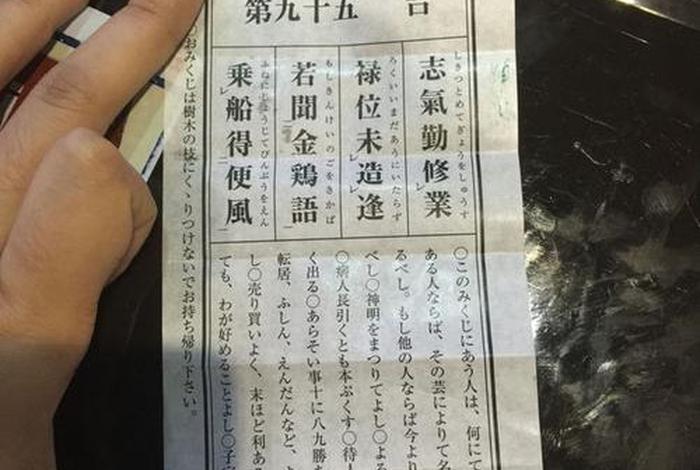 第九十五 吉
しきつとめてぎょうをしゅうす
志氣勤修業
ろくいいまだあうにいたらず
禄位未造逢
もしきんけいのごをきかば
若聞金鶏語
ふねにじょうじてびんぷうをえん
乗船得便風
〇このみくじにあう人は、何にて
ある人ならば、その芸によりて名
るべし。もし他の人ならば今より
べし〇神明をまつりてよし〇よろ
〇病人長引くとも本ぷくす〇待人
く出る〇あらそい事十に八九勝
転居、ふしん、えんだんなど、よ
し〇売り買いよく、末ほど利ある
ても、わが好めることよし〇子
〇おみくじは樹木の枝にくゝりつけないでお持ち帰り下さい。